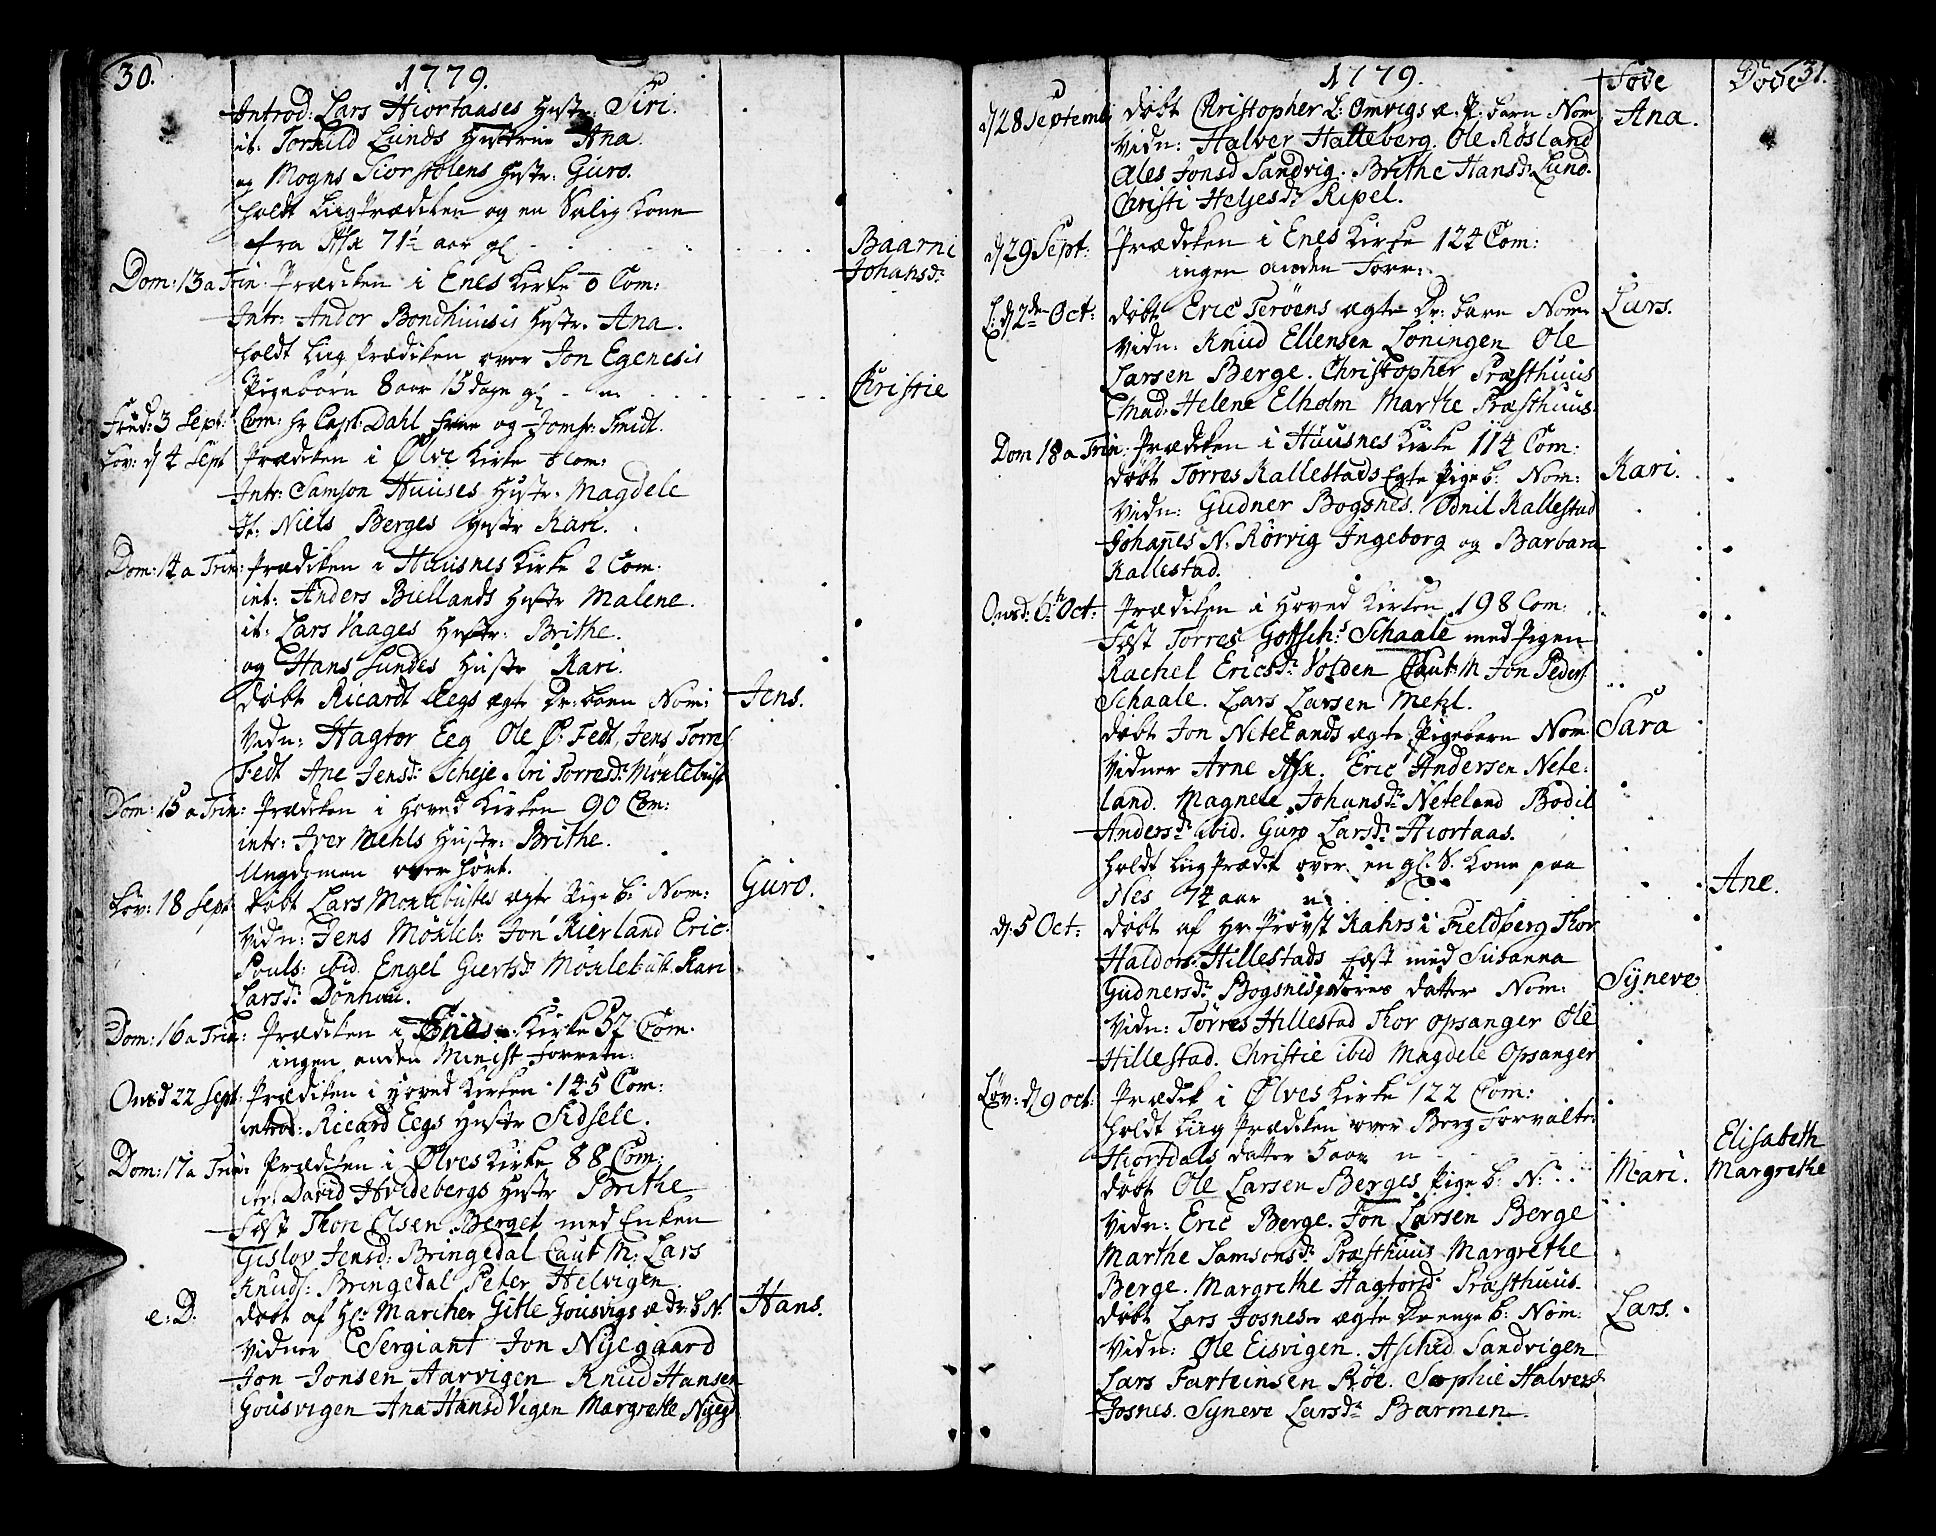 30.
1779.
Introd: Lars Hiortaases Hustr: Siri.
it: Torkild Lunds Hustrue Ana.
og Mogns Skorstelens Hustr: Guro.
holdt Liig Prædiken og en Salig Kone
fra Alsæ 71½ aar gl
Baarni
Johansdr
Dom: 13 a Trin: Prædiken i Enes Kirke 0 Com:
Intr: Andor Bondhuusis Hustr. Ana.
holdt Liig Prædiken over Jon Egenesis
Pigebarn 8 aar 15 dage gl
Christie
Fred: 3 Sept: Com: Hr Capt: Dahl Frue og Jomfr. Smidt.
Løv: d 4 Sept Prædiken i Ølve Kirke 8 Com:
Intr: Samson Huuses Hustr. Magdele
It: Niels Berges Hustr Kari.
Dom: 14 a Trin: Prædiken i Huusnes Kirke 2 Com.
int: Anders Biellands Hustr Malene.
it: Lars Vaages Hustr: Brithe.
og Hans Sundes Hustr Kari.
døbt Ricardt Eegs ægte Dr: barn Nom: Jens.
Vidn: Hagtor Eeg Ole Ø: Fedt, Jens Torres
Fedt Ane Jensdr Scheje Siri Torresdr Möxlebust
Dom: 15 a Trin: Prædiken i Hoved Kirken 90 Com:
intr: Iver Mehls Hustr: Brithe.
Ungdomen over hørt.
Løv: 18 Sept døbt Lars Moxlebustes ægte Pige b: Nom: Guro.
Vidn: Jens Möxleb: Jon Kierland Eric
Pouls: ibid. Engel Giertsdr Möxlebust. Kari
Larsdr Dönhou.
Dom: 16 a Trin: Prædiken i Enes Kirke 52 Com.
ingen anden Minist Forretn:
Onsd 22 Sept: Prædiken i Hoved Kirken 145 Com:
introd: Ricard Eegs Hustr Sidsele.
Dom: 17 a Trin: Prædiken i Ølves Kirke 88 Com:
itr: David Hvidebergs Hustr Brithe
Fæst Thore Olsen Berget med Enken
Gislov Jensd: Bringedal Caut M: Lars
Knuds: Bringedal Peter Helvigen
e: D. døbt af Hr: Marcher Gitle Gousvigs æ Dr: b N. Hans.
Vidner Sergiant Jon Nyegaard
Jon Jonsen Aarvigen Knud Hansen
Gousvigen Ana Hansd Vigen Margrethe Nyeg

31.
1779. Føde Døde
d 28 Septemb: døbt Christopher L: Omvigs æ. P: barn Nom Ana.
Vidn: Halver Hatteberg. Ole Røsland
Ales Jonsd Sandvig. Brithe Hansdr Lund.
Christi Heljesdr Ripel.
d 29 Sept: Prædiken i Enes Kirke 124 Com:
ingen anden Forr:
L: d 2den Oct: døbt Eric Terøens ægte Dr: barn Nom Lars.
Vidn: Knud Ellensen Loningen Ole
Larsen Berge. Christopher Præsthuus
Mad: Helene Elholm Marthe Præsthuus
Dom 18 a Trin: Prædiken i Huusnes Kirke 114 Com:
døbt Torres Kallestads Egte Pige b. Nom: Kari.
Vidn: Gudner Bogsnes. Odnil Kallestad
Johanes N. Rörvig Ingeborg og Barbara
Kallestad.
Onsd: 6th Oct: Prædiken i Hoved Kirken 198 Com:
Fæst Torres Gottsch: Schaale med Pigen
Rachel Ericsdr Volden Caut M Jon Peders
Schaale. Lars Larsen Mehl.
døbt Jon Netelands ægte Pigebarn Nom Sara
Vidner Arne Alsæ. Eric Andersen Nete:
land. Magnele Johansdr Neteland Bodil
Andersdr ibid. Guro Larsdr Hiortaas.
holdt Liig Prædik over en gl. S. Kone paa
Nes 74 aar
Ane.
d. 5 Oct: døbt af Hr Provst Rahrs i Fieldberg Thor
Haldors: Hillestads Fæst med Susanna
Gudnersdr Bogsnes Nores datter Nom: Syneve
Vidn: Torres Hillestad Thor Opsanger Ole
Hillestad. Christie ibid Magdele Opsanger
Løv: d 9 Oct: Prædik i Ølves Kirke 122 Com:
holdt Liig Prædiken over Berg Forvalter
Hiortdals datter 5 aar
Elisabeth
Margrethe
døbt Ole Larsen Berges Pige b: N: Mari.
Vidn: Eric Berge. Jon Larsen Berge
Marthe Samsonsdr Præsthuus Margrethe
Berge. Margrethe Hagtorsd: Præsthuus.
døbt Lars Josnes ægte Drenge b: Nom: Lars.
Vidn: Ole Eisvigen. Aschild Sandvigen
Lars Farteinsen Röe. Sophie Halversd
Josnes. Syneve Larsdr Barmen.